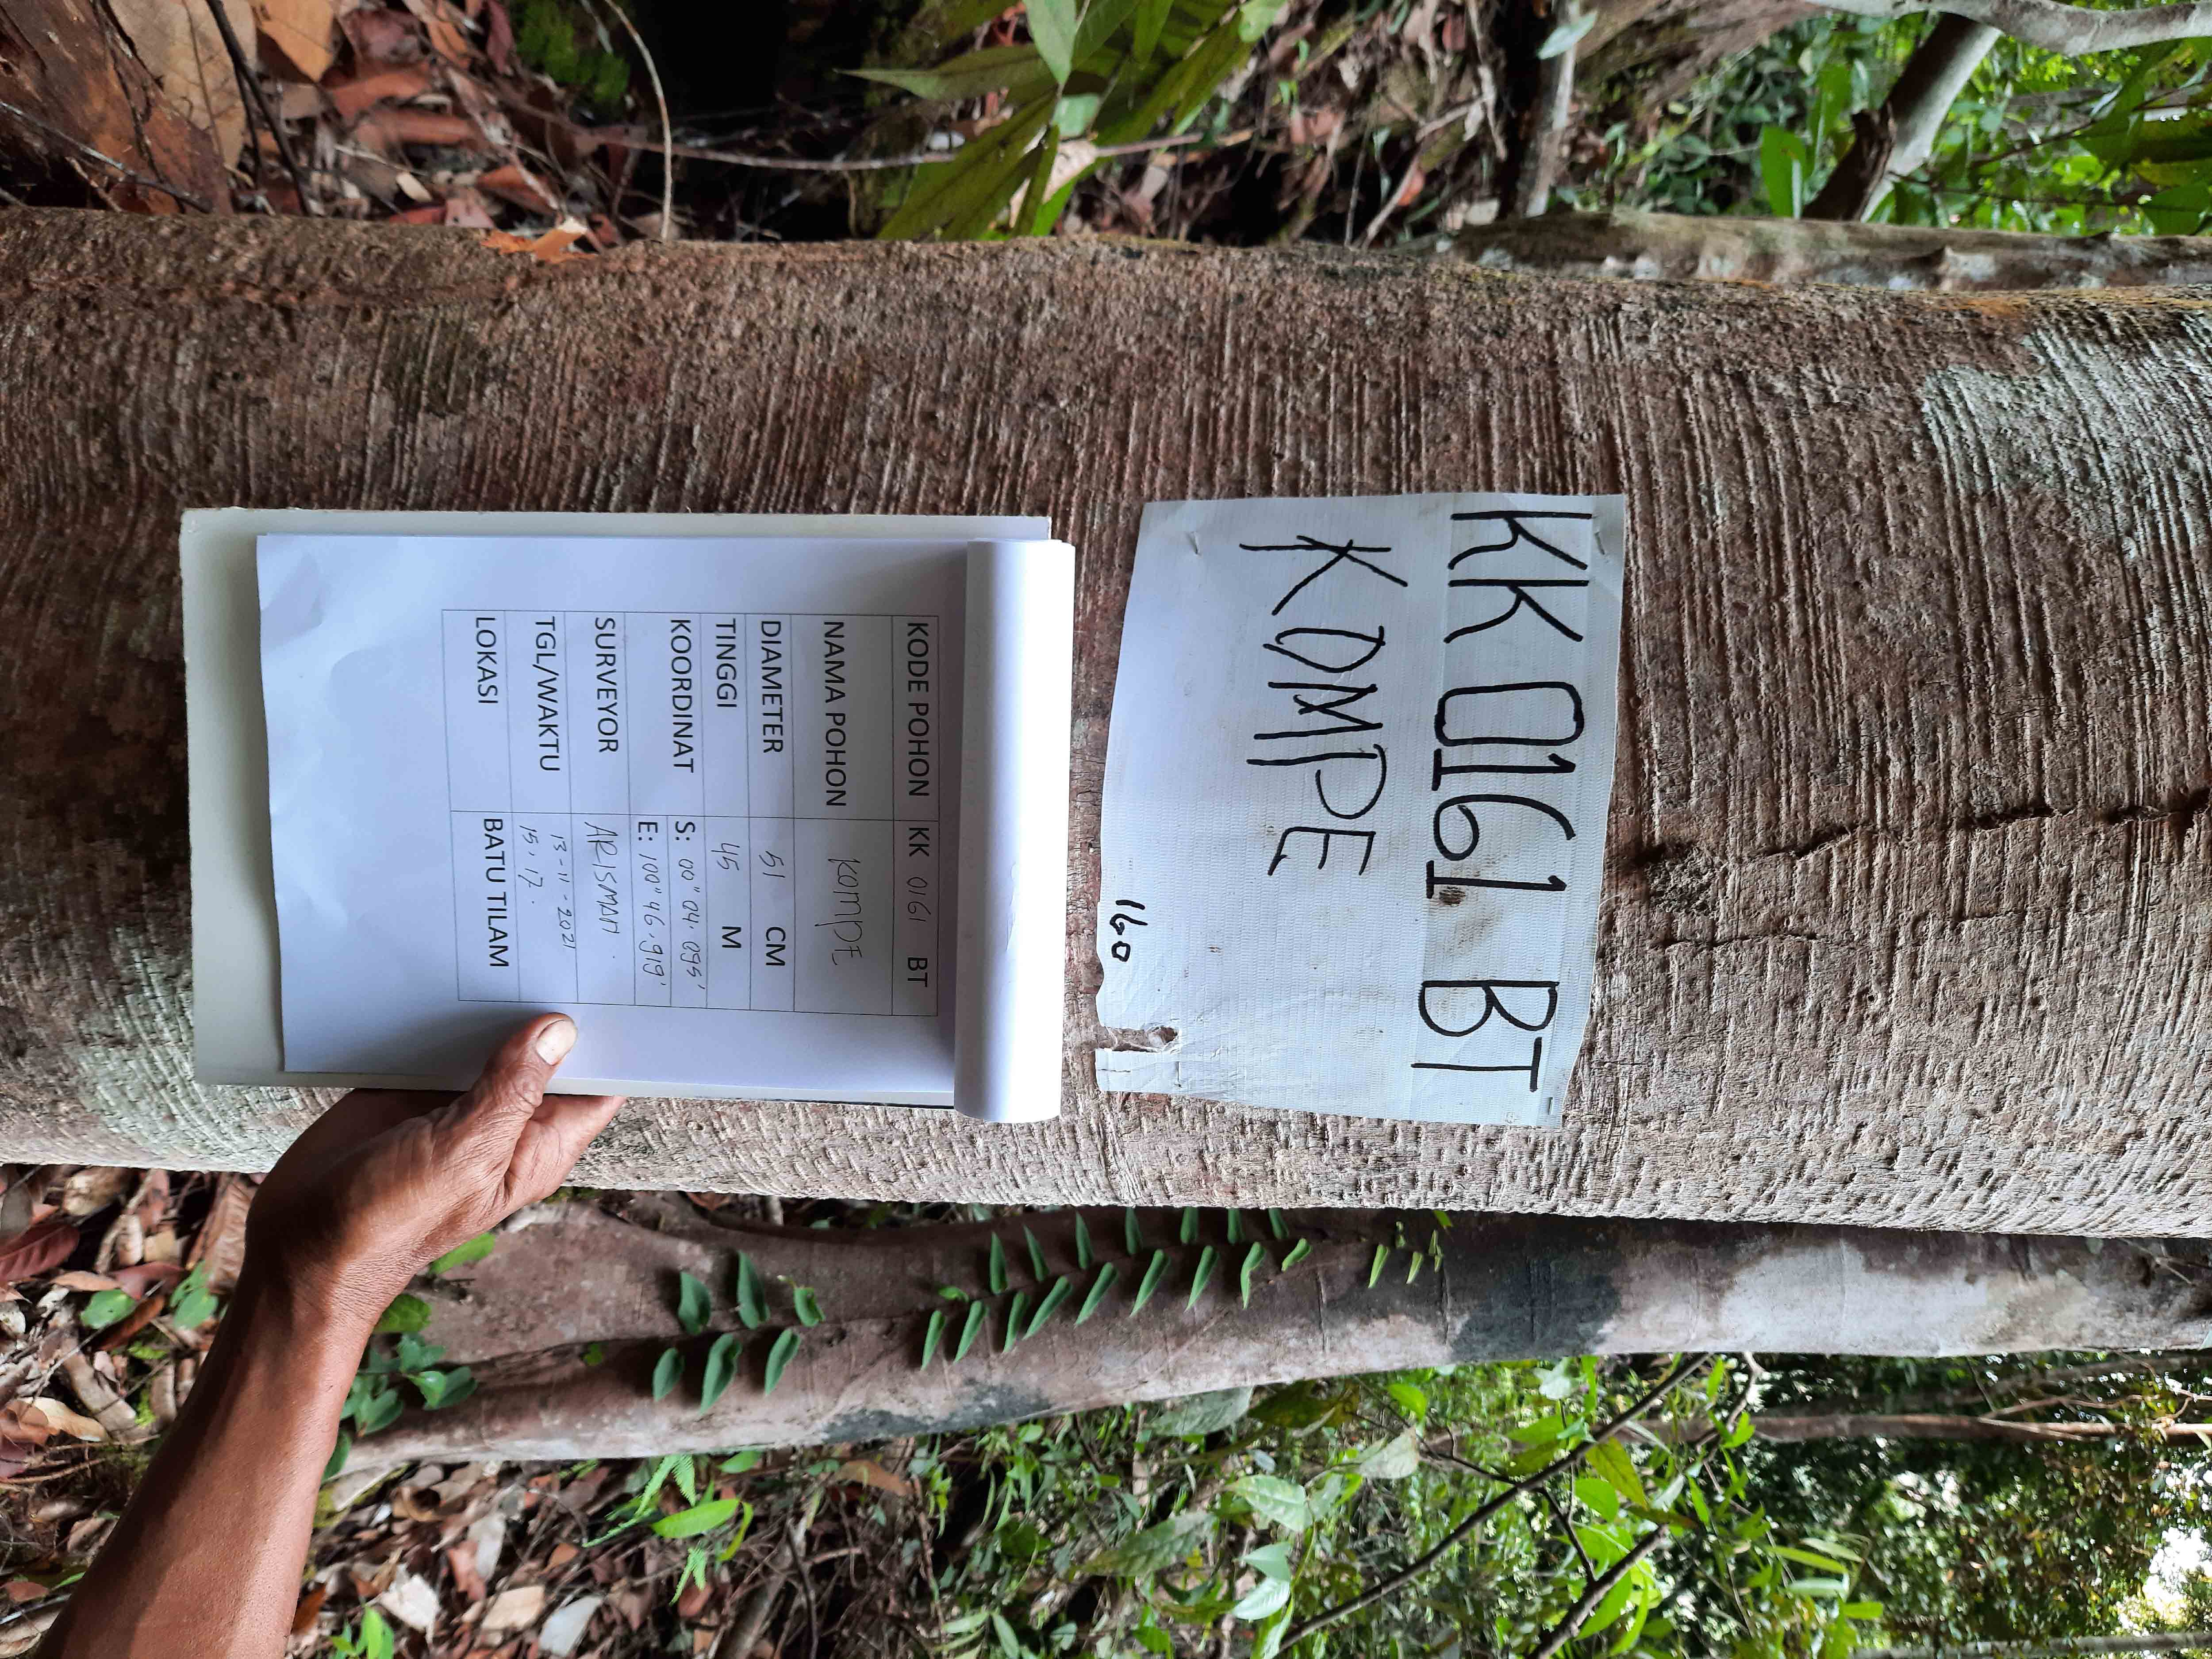 KK 0161 BT
KOMPE
160
KODE POHON KK 0161 BT
NAMA POHON KOMPE
DIAMETER 51 CM
TINGGI 45 M
KOORDINAT S: 00" 04. 095'
E: 100" 46. 919'
SURVEYOR ARISMAN.
TGL/WAKTU 13-11-2021
15.17.
LOKASI BATU TILAM